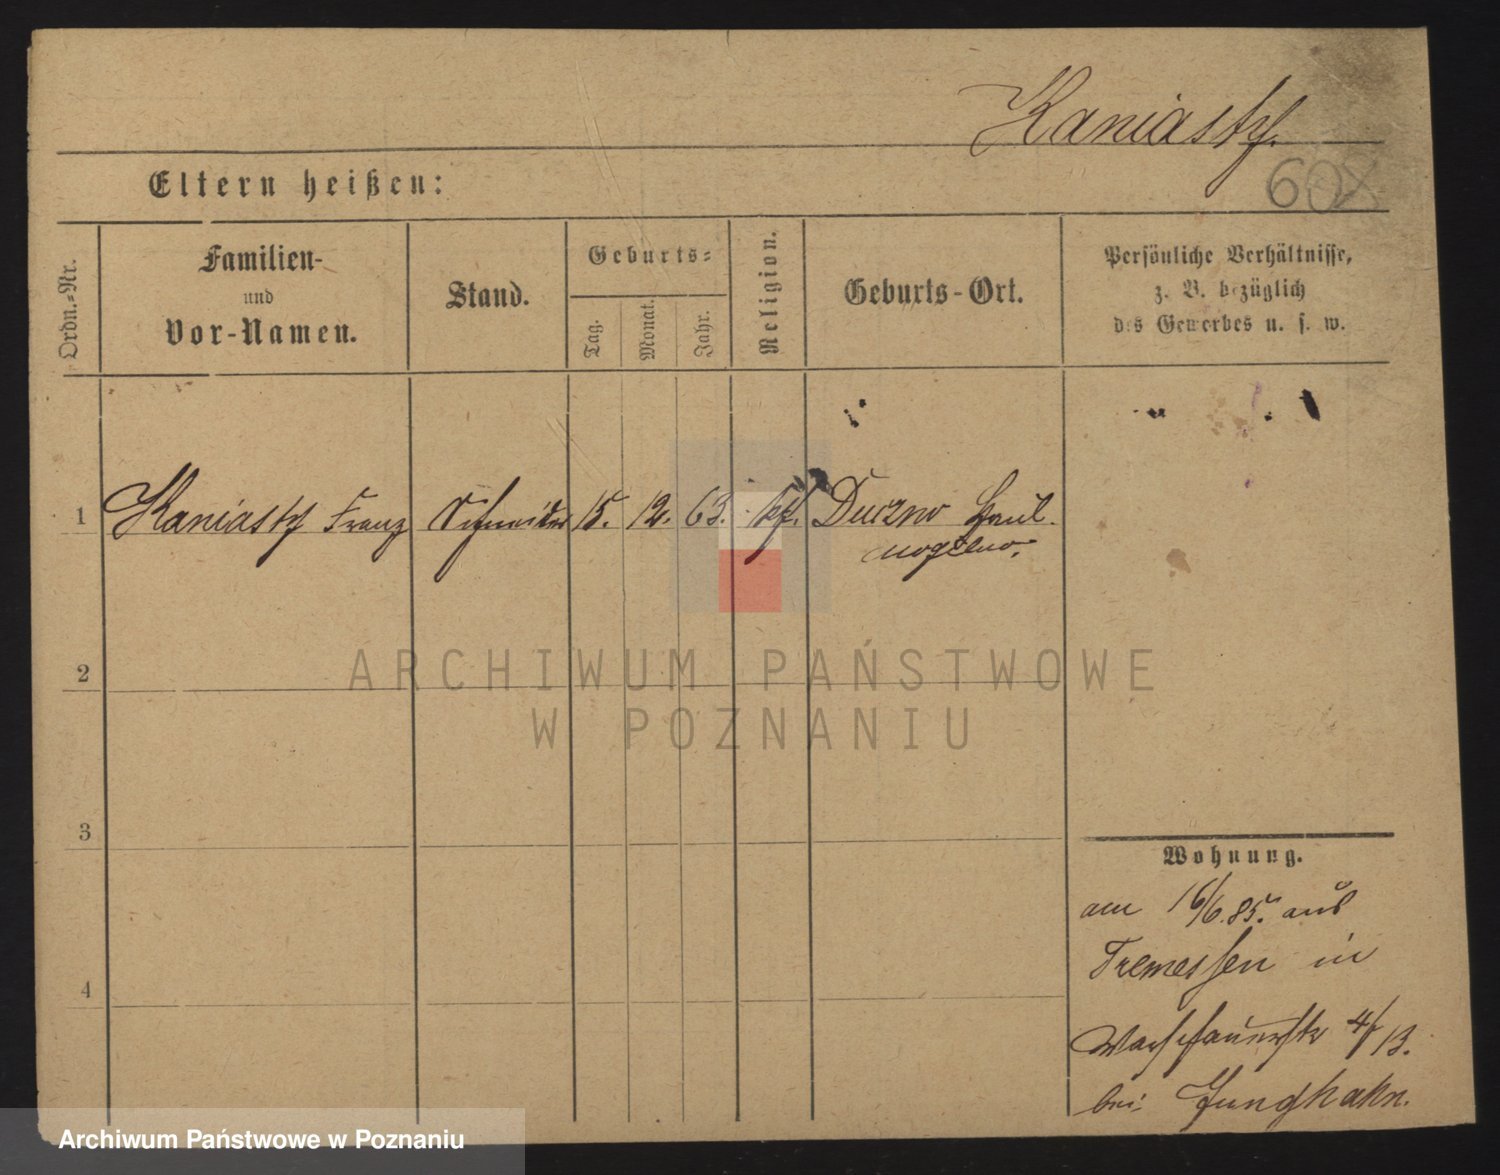 Kaniasty.
60X
Eltern heißen:
Ordn.-Nr.
Familien-
und
Vor-Namen.
Stand.
Geburts-
Tag.
Monat.
Jahr.
Religion.
Geburts-Ort.
Persönliche Verhältnisse,
z. B. bezüglich
des Gewerbes u. s. w.
1 Kaniasty Franz Schneider 15. 12. 63. kth. Duszno
Mogilno.
2
3
4
Wohnung.
am 16/6.85. aus
Tremessen in
4/13.
bei Junghahn.
ARCHIWUM PAŃSTWOWE
W POZNANIU
Archiwum Państwowe w Poznaniu